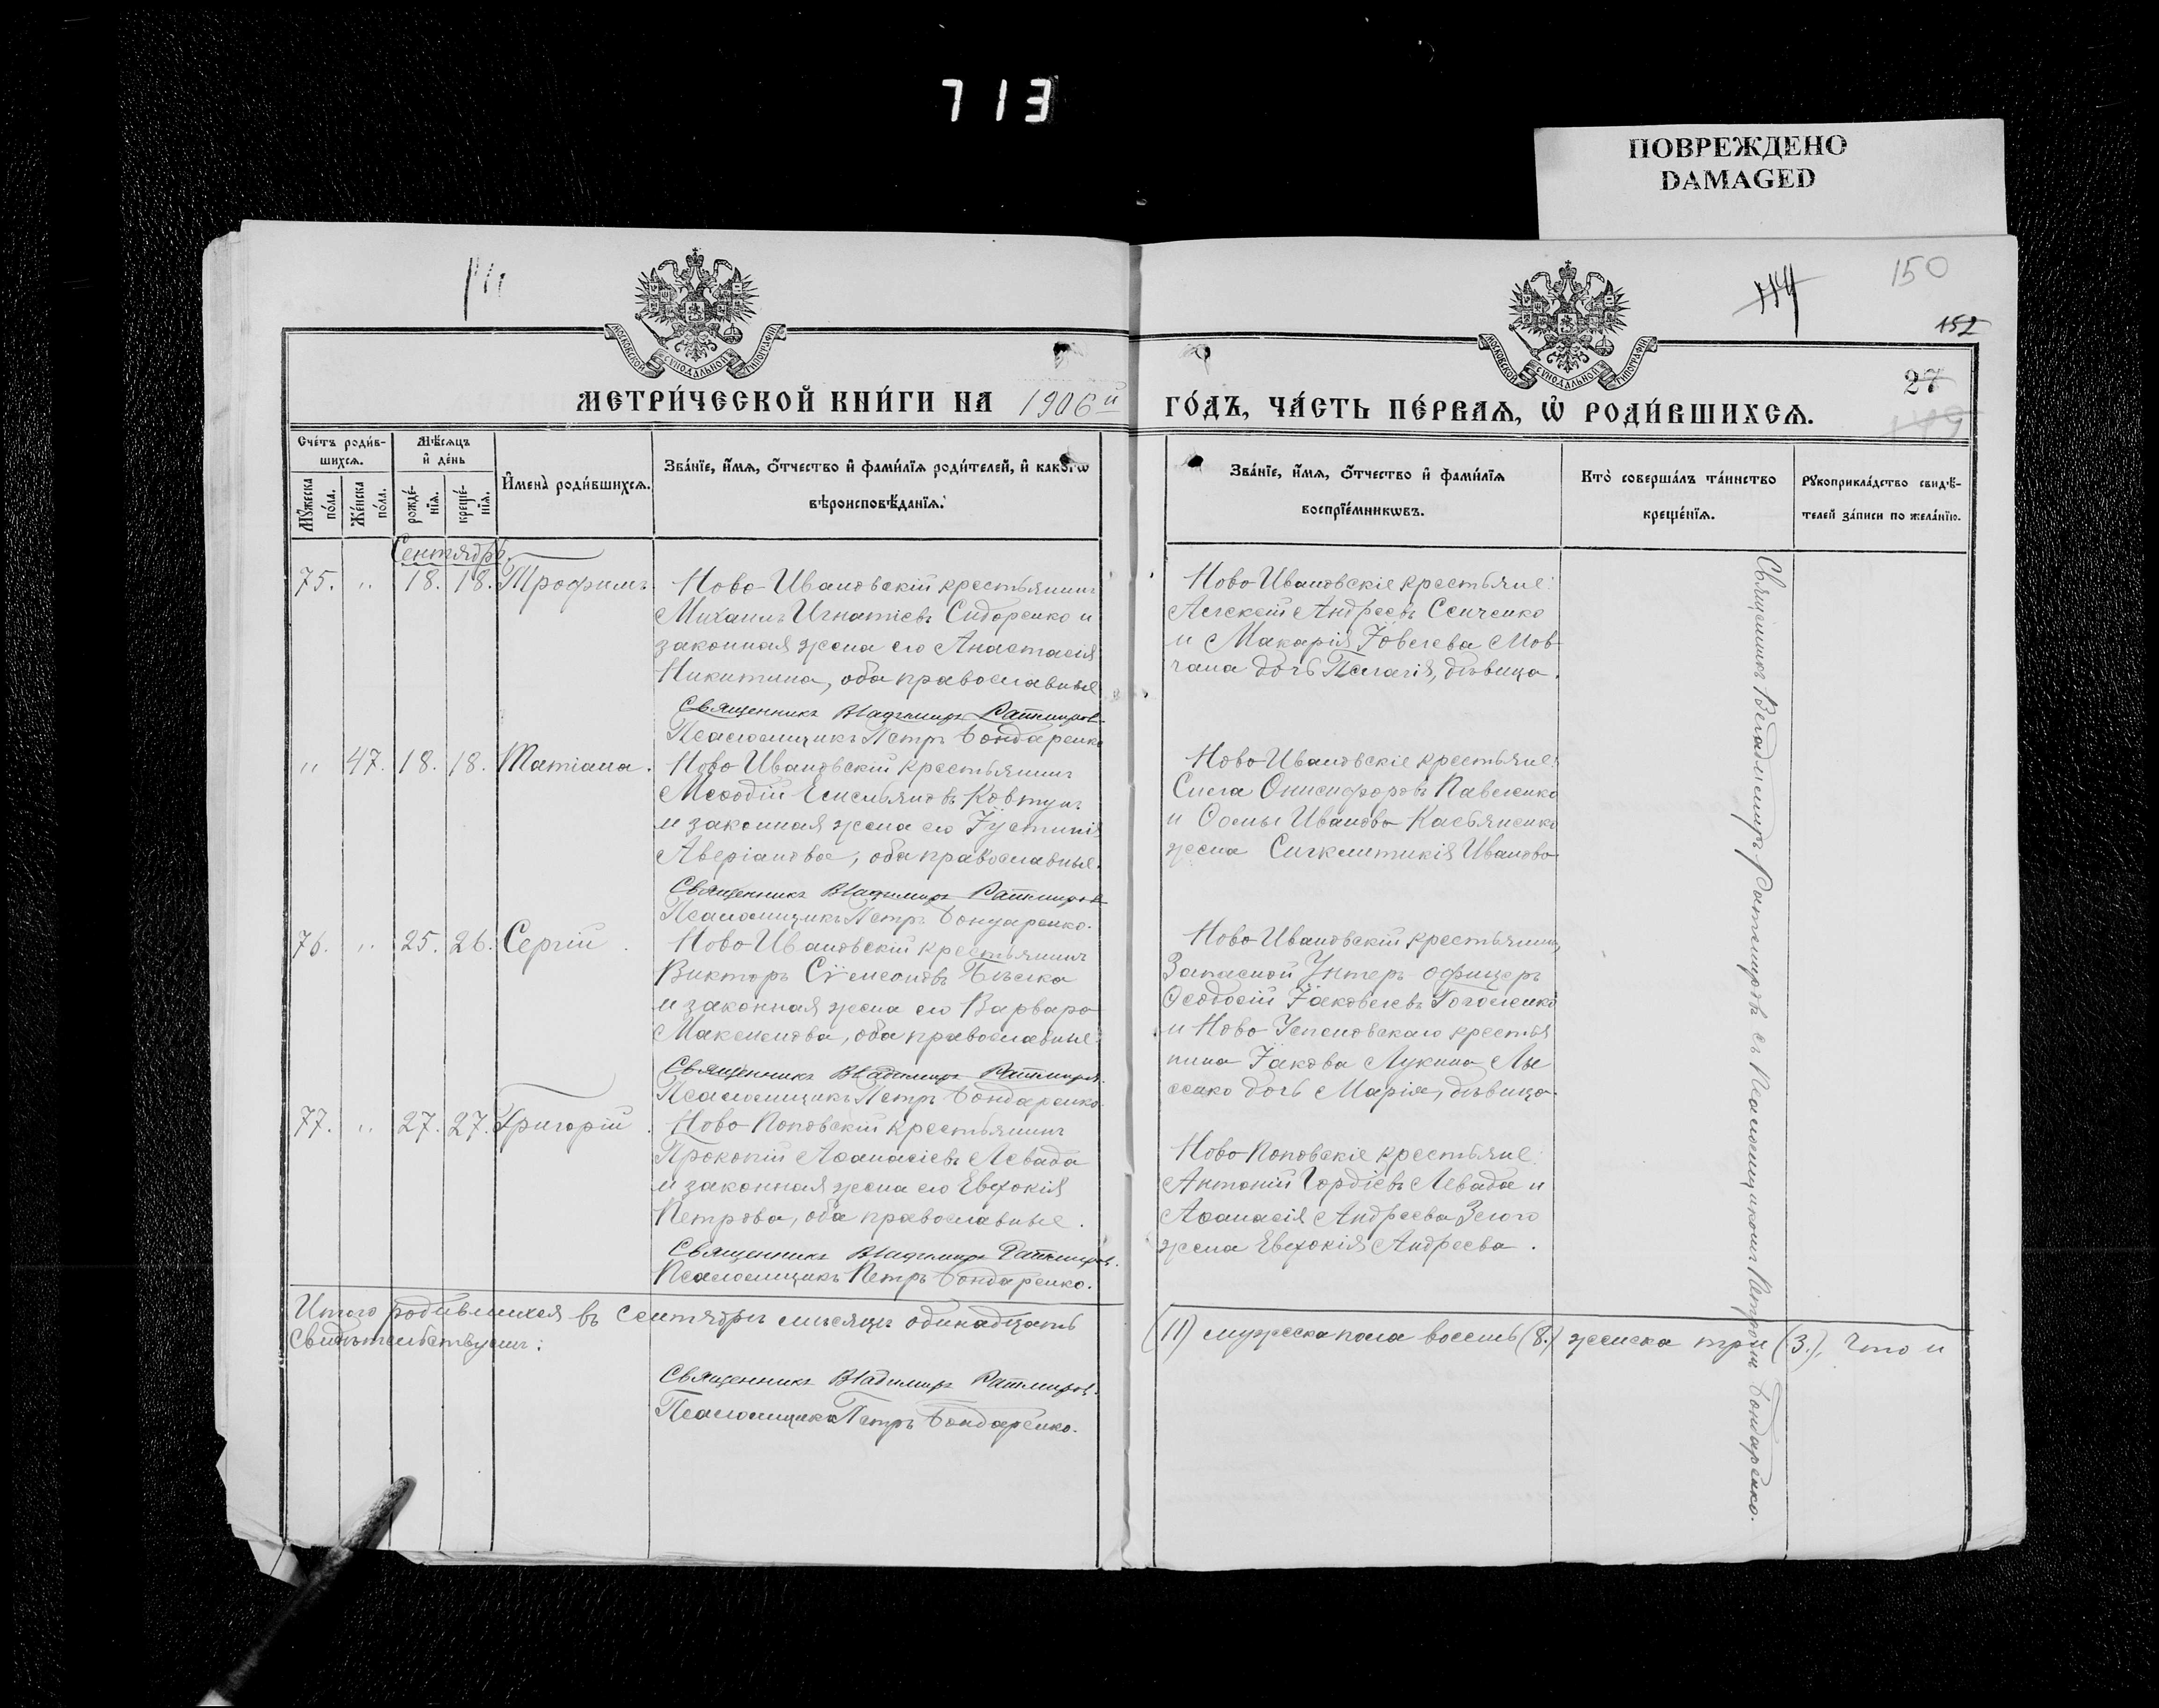 713
ПОВРЕЖДЕНО
DAMAGED
150
152
27
МОСКОВСКОЙ СѴНОДАЛЬНОЙ ТИПОГРАФІИ
МОСКОВСКОЙ СѴНОДАЛЬНОЙ ТИПОГРАФІИ
МЕТРИ́ЧЕСКОЙ КНИ́ГИ НА 1906й
ГО́ДЪ, ЧА́СТЬ ПЕ́РВАѦ, Ѡ҆ РОДИ́ВШИХСѦ.
Сче́тъ роди́в-
шихсѧ.
Мꙋ́жеска по́ла.
Же́нска по́ла.
Мѣ́сѧцъ
и҆ де́нь
рожде́-
нїѧ.
креще́-
нїѧ.
И҆мена̀ роди́вшихсѧ.
Зва́нїе, и҆́мѧ, ѻ҆́тчество и҆ фами́лїѧ роди́телей, и҆ како́гѡ
вѣроисповѣ́данїѧ.
Зва́нїе, и҆́мѧ, ѻ҆́тчество и҆ фами́лїѧ
воспрїе́мникѡвъ.
Кто̀ соверша́лъ та́инство
креще́нїѧ.
Рꙋкоприкла́дство свидѣ́-
телей за́писи по жела́нїю.
Сентябрь.
75. " 18. 18. Трофимъ.
Ново-Ивановскій крестьянинъ
Михаилъ Игнатіевъ Сидоренко и
законная жена его Анастасія
Никитина, оба православные
Священникъ Владимиръ Ратмировъ
Псаломщикъ Петръ Бондаренко
Ново-Ивановскіе крестьяне:
Алексѣй Андреевъ Сенченко
и Макарія Іовлева Мов-
чана дочь Пелагія, дѣвица.
" 47. 18. 18. Татіана.
Ново Ивановскій крестьянинъ
Меѳодій Емельяновъ Ковтунъ
и законная жена его Іустинія
Аверіанова, оба православные.
Священникъ Владимиръ Ратмировъ
Псаломщикъ Петръ Бондаренко.
Ново-Ивановскіе крестьяне:
Сила Онисифоровъ Павленко
и Ѳомы Иванова Касьяненко
жена Синклитикія Иванова
76. " 25. 26. Сергій.
Ново Ивановскій крестьянинъ
Викторъ Сѵмеоновъ
и законная жена его Варвара
Максимова, оба православные.
Священникъ Владимиръ Ратмировъ.
Псаломщикъ Петръ Бондаренко.
Ново Ивановскій крестьянинъ,
Запасной Унтеръ-офицеръ
Ѳеодосій Іаковлевъ Гоголенко
и Ново Успеновскаго крестья
нина Іакова Лукина Лы
сенко дочь Марія, дѣвица.
77. " 27. 27. Григорій.
Ново-Поповскій крестьянинъ
Прокопій Аѳанасіевъ Левада
и законная жена его Евдокія
Петрова, оба православные.
Священникъ Владимиръ Ратмировъ.
Псаломщикъ Петръ Бондаренко.
Ново-Поповскіе крестьяне:
Антоній Гордіевъ Левада и
Аѳанасія Андреева
жена Евдокія Андреева.
Священникъ Владимиръ Ратмировъ съ Псаломщикомъ Петромъ Бондаренко.
Итого родившихся въ сентябрѣ мѣсяцѣ одинадцать (11) мужеска пола восемь (8.) женска три (3.), Что и
свидѣтельствуемъ:
Священникъ Владимиръ Ратмировъ.
Псаломщикъ Петръ Бондаренко.